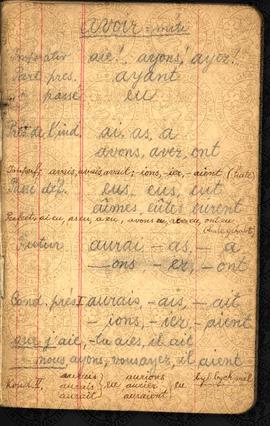 avoir =
Imperativ aie! ayons! ayez!
Part. pres. ayant
" passé eu
Prés de l'ind. ai, as, a
avons, avez, ont
Imparf: avais, avais, avait; -ions, -iez, -aient (hatte)
Passé déf. eus, eus, eut
eûmes, eûtes eurent
ai eu, as eu, a eu, avons eu, avez eu, ont eu
Futur aurai - as, - a
- ons - ez, - ont
Cond. prés I aurais, - ais, - ait
- ions, - iez, - aient
que j'aie, - tu aies, il ait
nous ayons, vous ayez, il aient
Kond. II, aurais } eu aurions } eu
aurais auriez
aurait auraient